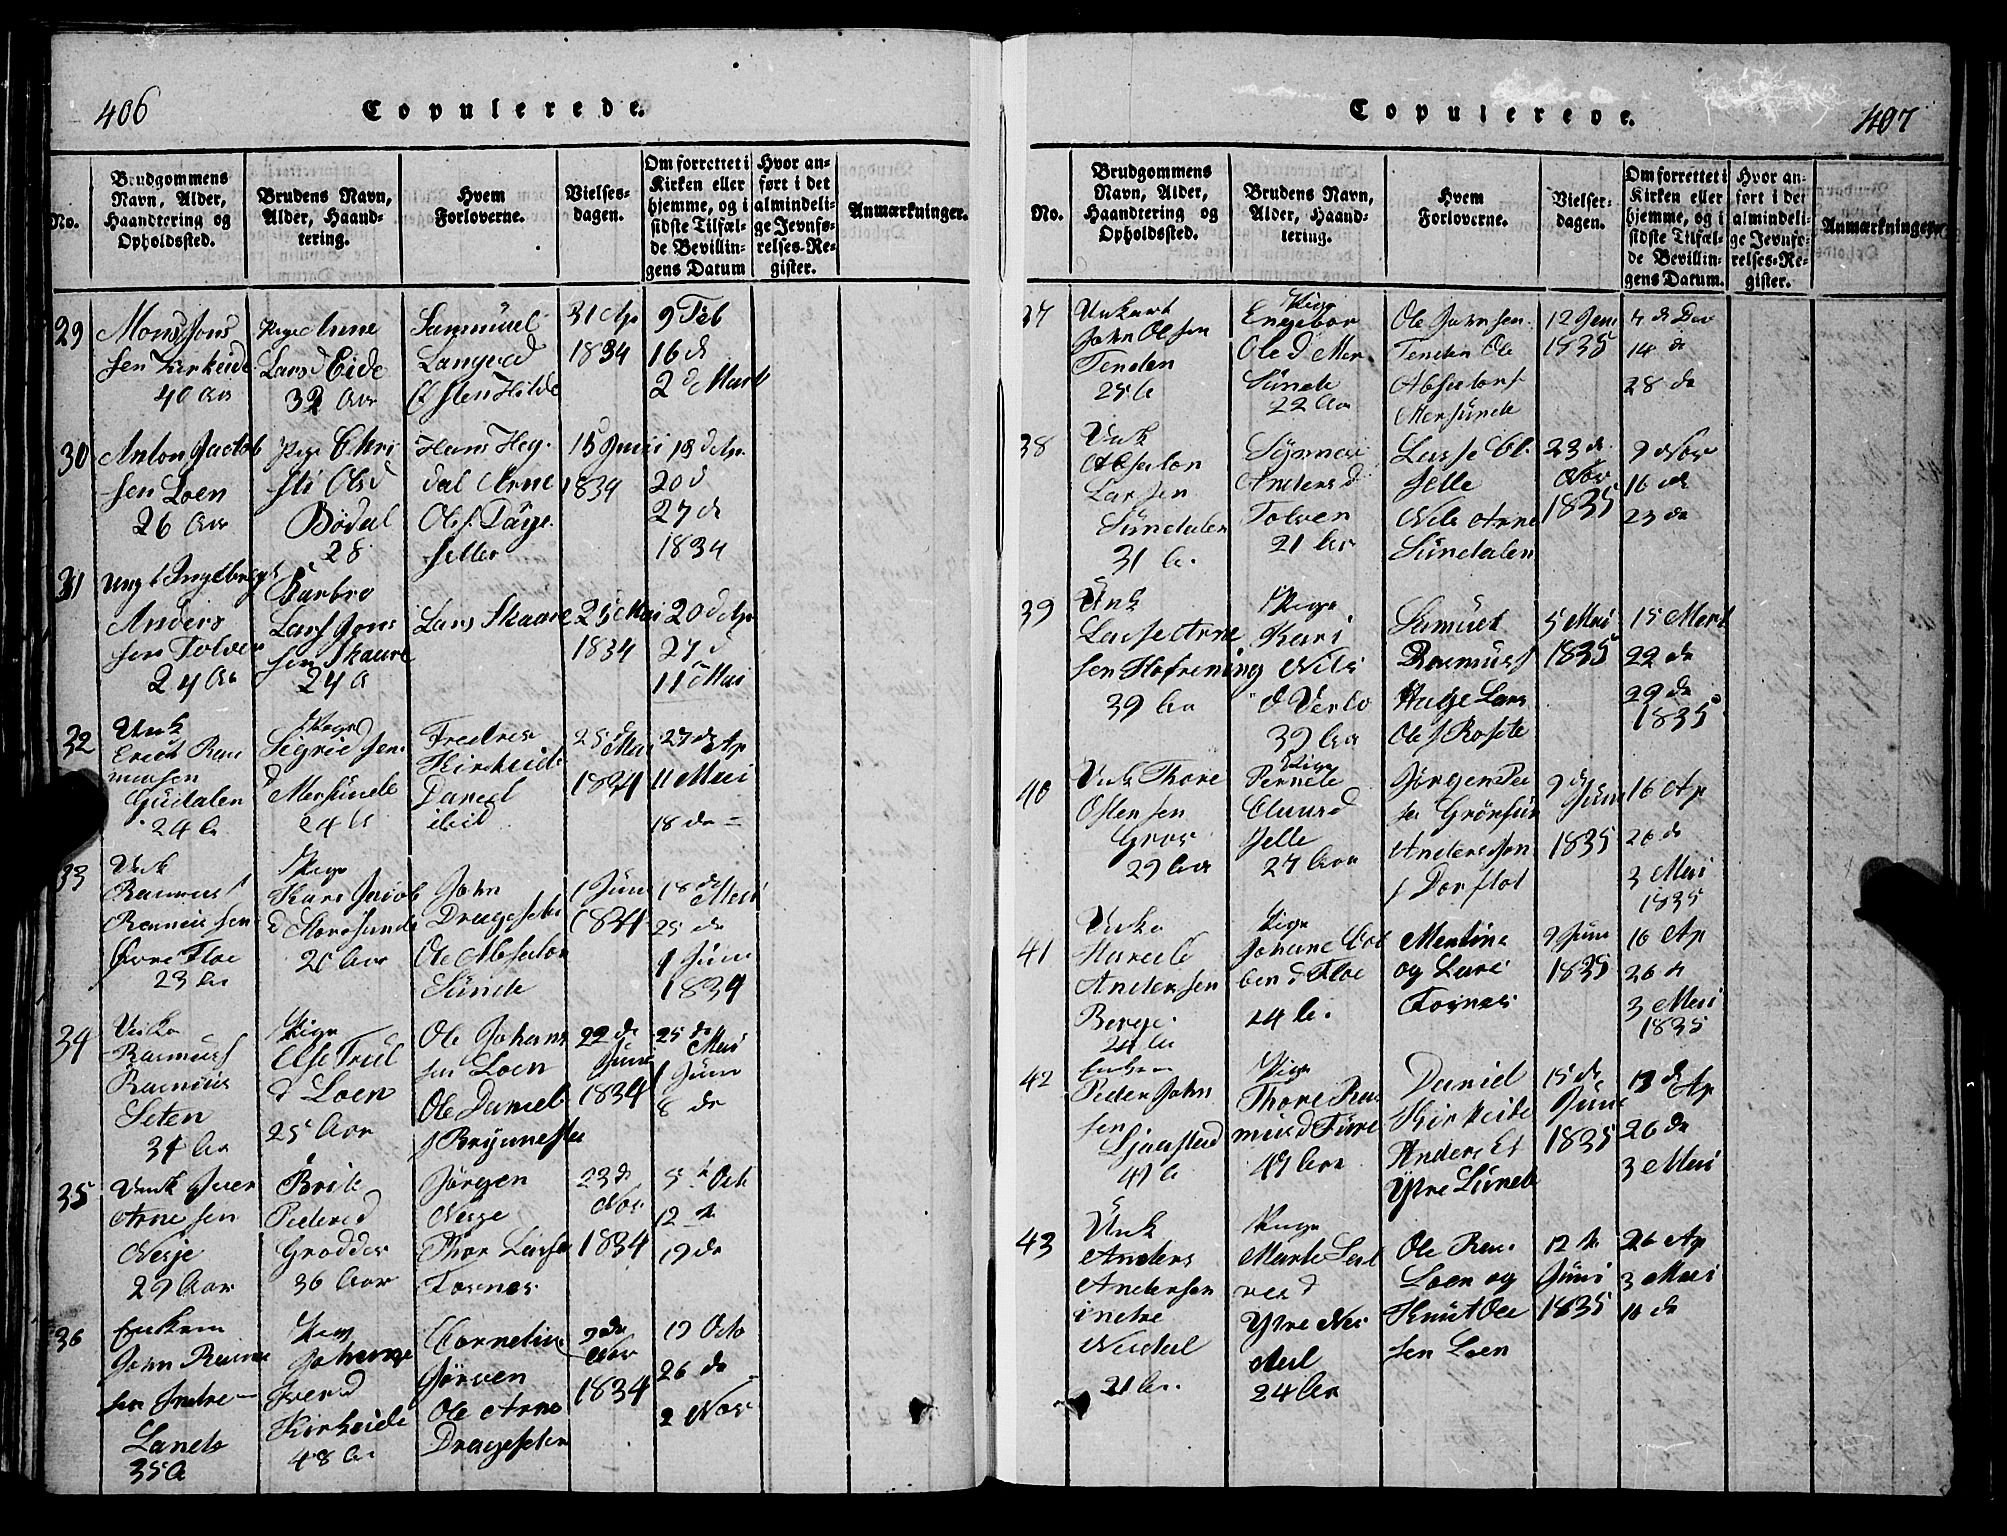 406
Copulerede.
No.
Brudgommens Navn, Alder, Haandtering og Opholdssted.
Brudens Navn, Alder, Haandtering.
Hvem Forloverne.
Vielsesdagen.
Om forrettet i Kirken eller hjemme, og i sidste Tilfælde Bevillingens Datum
Hvor anført i det almindelige Jevnførelses-Register.
Anmærkninger.
29
Mons Jons
sen Kirkeide
40 Aar
Pige Anne
Lars d Eide
32 Aar
Samuel
Langved
Østen Hilde
31 Ap
1834
9 Feb
16 d
2 d Mart
30
Anton Jacob
sen Loen
26 Aar
Pige Chri
sti Ols d
Bødal
28
Hans Heg
dal Arne
Ole s.
setter
15 Juni
1834
13 d Ap.
20 d
27 d
1834
31
Ungk Ingebrigt
Anders
sen Tolven
24 Aar
Barbro
Lars Jons
sen Skaare
24 A
Lars Skaare
25 Mai
1834
20 d Ap
27 d
11 Mai
32
Unk
Erich Ras
musen
Gudalen
24 A
Pige
Sigrid Jen
d
Mersunde
24 A
Fredric
Kirkeide
Daniel
ibid
25 d
Mai
1834
27 d Ap
11 Mai
18 de
33
Unk
Rasmus
Rasmussen
Øvre Floe
23 Aar
Pige
Kari Jacob
d
20 Aar
John
Drageset
Ole Absalon
Sunde
1 Juni
1834
18 d
Mai
25 de
1 Juni
1834
34
Unk
Rasmus
Rasmus
Seten
34 Aar
Pige
Else
d Loen
25 Aar
Ole Johans
sen Loen
Ole Daniel
s Bryneste
22 de
Juni
1834
25 d
Mai
1 Juni
8 de
35
Unk Iver
Arne sen
Nesje
29 Aar
Brite
Peders d
Grodder
36 Aar
Jørgen
Nesje
Thor Lasse
Tornes
23 d
Nov
1834
5 t Oct
12 t
19 de
36
Enkem
John Rasmu
sen Indre
Lande
35 A
Pige
Johanne
Iver d
Kirkeide
48 Aar
Cornelius
Jørven
Ole Arne
Drageseten
9 de
Nov
1834
19 Octo
26 de
2 Nov
407
Copulerede.
No.
Brudgommens Navn, Alder, Haandtering og Opholdssted.
Brudens Navn, Alder, Haandtering.
Hvem Forloverne.
Vielsesdagen.
Om forrettet i Kirken eller hjemme, og i sidste Tilfælde Bevillingens Datum.
Hvor anført i det almindelige Jevnførelses-Register.
Anmærkninger
37
Unkart
John Olsen
Tenden
25 A
Pige
Engebor
Ole d Mer
Sunde
22 Aar
Ole Johnsen
Tenden Ole
Absalons
Mersunde
12 Jan
1835
4 de Dec
14 de
28 de
38
Unk
Absalon
Larsen
Sundalen
31 A.
Synneve
Anders d
Tolven
21 Aar
Lasse Ol.
Selle
Nils Arne
Sundalen
23 de
Nov
1835
9 Nov
16 de
23 de
39
Unk
Lasse Arne
sen Hofrening
39 Aar
Pige
Kari
Nils
d Verlo
39 Aar
Samuel
Rasmus
Hage Lars
Ole s Rosete
5 Mai
1835
15 Mart
22 de
29 de
1835
40
Unk Thore
Osten sen
Gror
29 Aar
Pige
Pernele
Claus d
Selle
27 Aar
Jørgen Pe
ser Grønsun
Anders Jon
s Dorflot
9 d
Juni
1835
16 Ap
26 de
3 Mai
1835
41
Unka
Harald
Andersen
Berge
24 Aar
Pige
Johane
ben d Floe
24 A.
Mentine
og Lars
Tornes
9 Juni
1835
16 Ap
26 d
3 Mai
1835
42
Enkem
Peder John
sen
Ljaastad
41 A
Pige
Thore Ras
mus d Fure
49 Aar
Daniel
Kirkeide
Anders El
Ytre Sunde
15 de
Juni
1835
19 d Ap
26 de
3 Mai
43
Unk
Anders
Andersen
indre
Nesdal
21 Aar.
Pige
Marte
nes d
Ytre Nes
dal
24 Aar
Ole Ras
Loen og
Knut Ole
sen Loen
12 te
Juni
1835
26 Ap
3 Mai
10 d